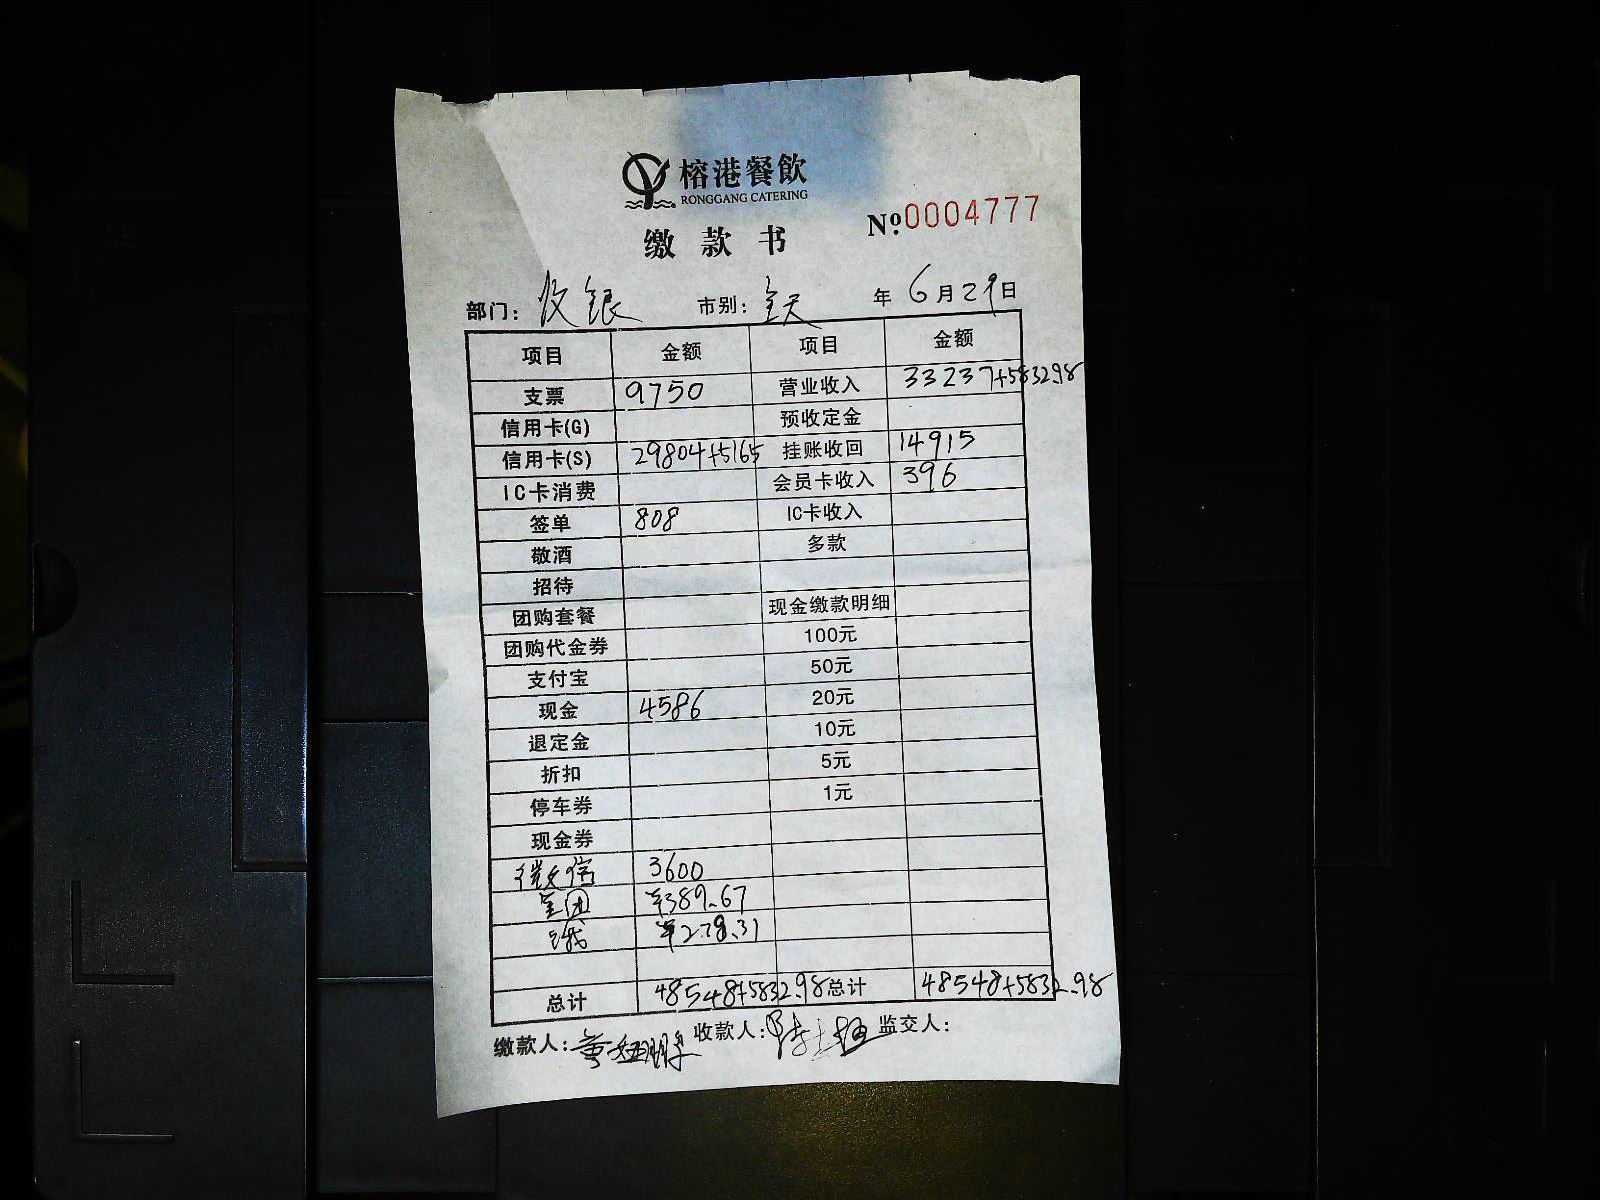 榕港餐飲
RONGGANG CATERING
缴款书
№0004777
部门：收银 市别：全天 年 6月29日
项目 金额 项目 金额
支票 9750 营业收入 33237+5832.98
信用卡(G) 预收定金
信用卡(S) 29804+5165 挂账收回 14915
IC卡消费 会员卡收入 396
签单 808 IC卡收入
敬酒 多款
招待
团购套餐 现金缴款明细
团购代金券 100元
支付宝 50元
现金 4586 20元
退定金 10元
折扣 5元
停车券 1元
现金券
微信 3600
美团 ¥389.67
饿 ¥278.31
总计 48548+5832.98 总计 48548+5832.98
缴款人： 收款人： 监交人：